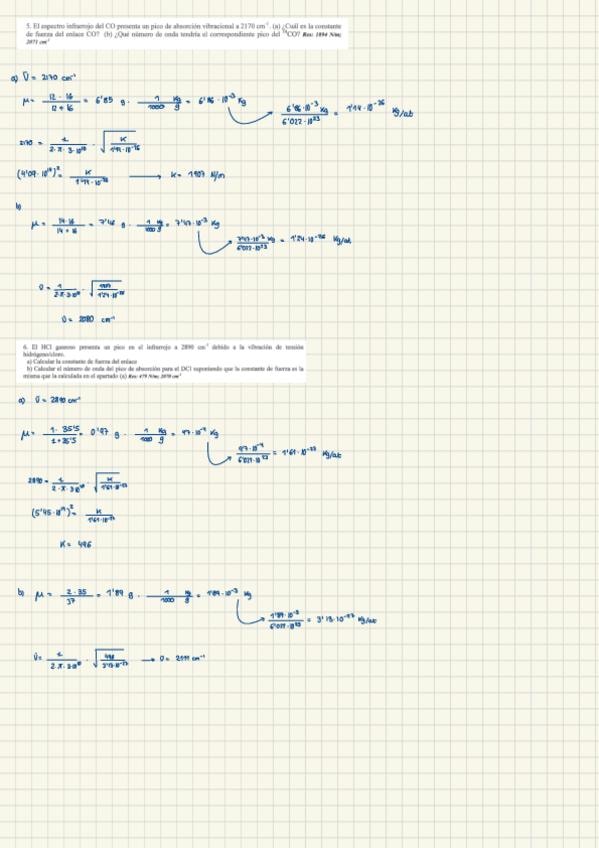 5. El espectro infrarrojo del CO presenta un pico de absorción vibracional a 2170 cm⁻¹. (a) ¿Cuál es la constante
de fuerza del enlace CO? (b) ¿Qué número de onda tendría el correspondiente pico del ¹⁴CO? Res: 1894 N/m;
2071 cm⁻¹
a) ῡ = 2170 cm⁻¹
μ = 12 · 16 / 12 + 16 = 6'85 g · 1 Kg / 1000 g = 6'86 · 10⁻³ Kg
6'86 · 10⁻³ Kg / 6'022 · 10²³ = 1'14 · 10⁻²⁶ Kg/at
2170 = 1 / 2 · π · 3 · 10¹⁰ · √ K / 1'14 · 10⁻²⁶
(4'09 · 10¹⁴)² = K / 1'14 · 10⁻²⁶ → K = 1907 N/m
b)
μ = 14 · 16 / 14 + 16 = 7'46 g · 1 Kg / 1000 g = 7'47 · 10⁻³ Kg
7'47 · 10⁻³ Kg / 6'022 · 10²³ = 1'24 · 10⁻²⁶ Kg/at
ῡ = 1 / 2 · π · 3 · 10¹⁰ · √ 1907 / 1'24 · 10⁻²⁶
ῡ = 2080 cm⁻¹
6. El HCl gaseoso presenta un pico en el infrarrojo a 2890 cm⁻¹ debido a la vibración de tensión
hidrógeno/cloro.
a) Calcular la constante de fuerza del enlace
b) Calcular el número de onda del pico de absorción para el DCl suponiendo que la constante de fuerza es la
misma que la calculada en el apartado (a) Res: 479 N/m; 2070 cm⁻¹
a) ῡ = 2890 cm⁻¹
μ = 1 · 35'5 / 1 + 35'5 = 0'97 g · 1 Kg / 1000 g = 97 · 10⁻⁴ Kg
97 · 10⁻⁴ / 6'022 · 10²³ = 1'61 · 10⁻²⁷ Kg/at
2890 = 1 / 2 · π · 3 · 10¹⁰ · √ K / 1'61 · 10⁻²⁷
(5'45 · 10¹⁴)² = K / 1'61 · 10⁻²⁷
K = 496
b) μ = 2 · 35 / 37 = 1'89 g · 1 Kg / 1000 g = 1'89 · 10⁻³ Kg
1'89 · 10⁻³ / 6'022 · 10²³ = 3'13 · 10⁻²⁷ Kg/at
ῡ = 1 / 2 · π · 3 · 10¹⁰ · √ 496 / 3'13 · 10⁻²⁷ → ῡ = 2111 cm⁻¹